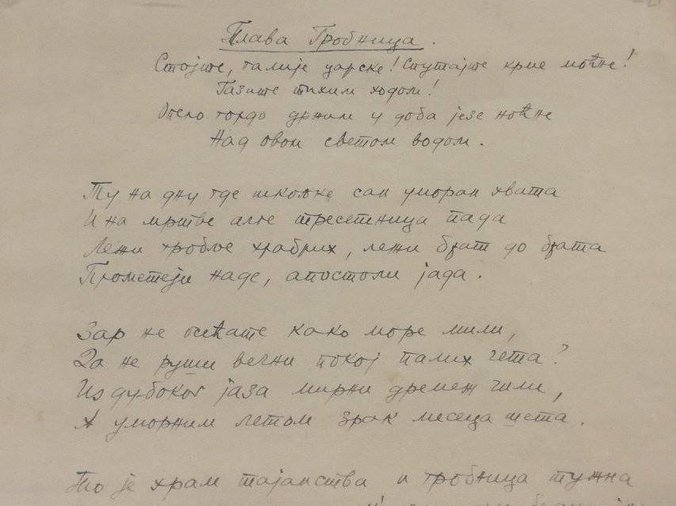 Плава Гробница.
Стојте, галије царске! Спутајте крме моћне!
Газите тихим ходом!
Опело гордо држим у доба језе ноћне
Над овом светом водом.
Ту на дну где шкољке сан уморан хвата
И на мртве алге тресетница пада
Лежи гробље храбрих, лежи брат до брата
Прометеји наде, апостоли јада.
Зар не осећате како море мили,
Да не руши вечни покој палих чета?
Из дубоког јаза мирни дремеж чили,
А уморним летом зрак месеца шета.
То је храм тајанства и гробница тужна